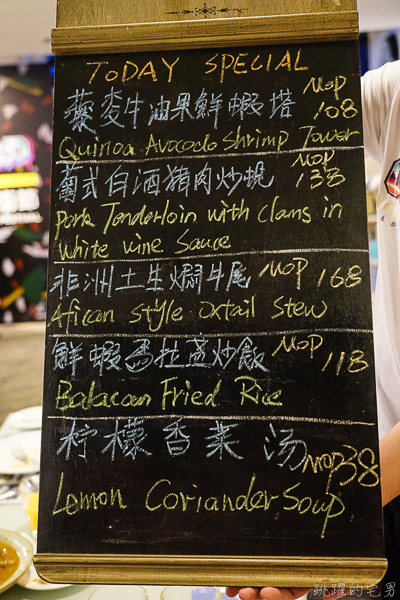 TODAY SPECIAL
藜麥牛油果鮮蝦塔 MOP 108
Quinoa Avocado Shrimp Tower
葡式白酒猪肉炒蜆 MOP 138
Pork Tenderloin with clams in
white wine Sauce
非洲土生燜牛尾 MOP 168
African style oxtail stew
鮮蝦馬拉盞炒飯 MOP 118
Balacan Fried Rice
柠檬香菜汤 MOP 38
Lemon Coriander Soup
跳躍的宅男